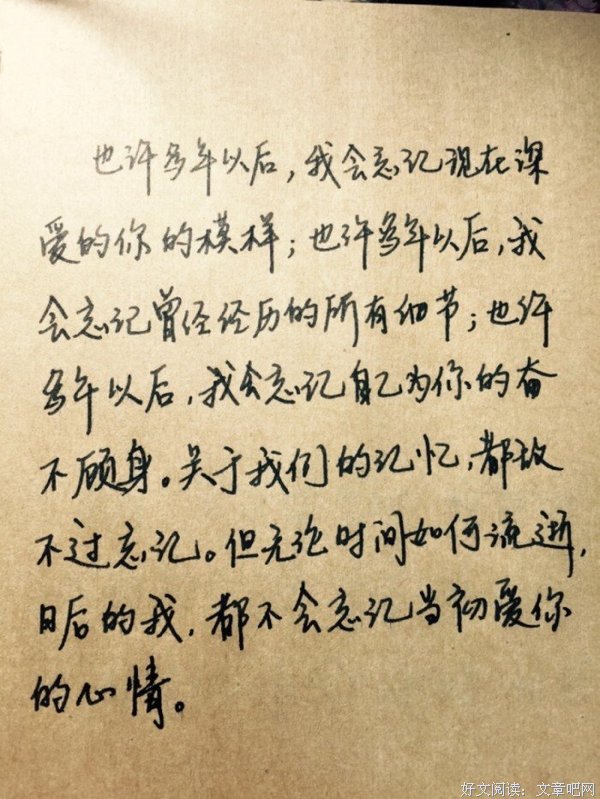 也许多年以后，我会忘记现在深
爱的你的模样；也许多年以后，我
会忘记曾经经历的所有细节；也许
多年以后，我会忘记自己为你的奋
不顾身。关于我们的记忆，都敌
不过忘记。但无论时间如何流逝，
日后的我，都不会忘记当初爱你
的心情。
好文阅读：文章吧网